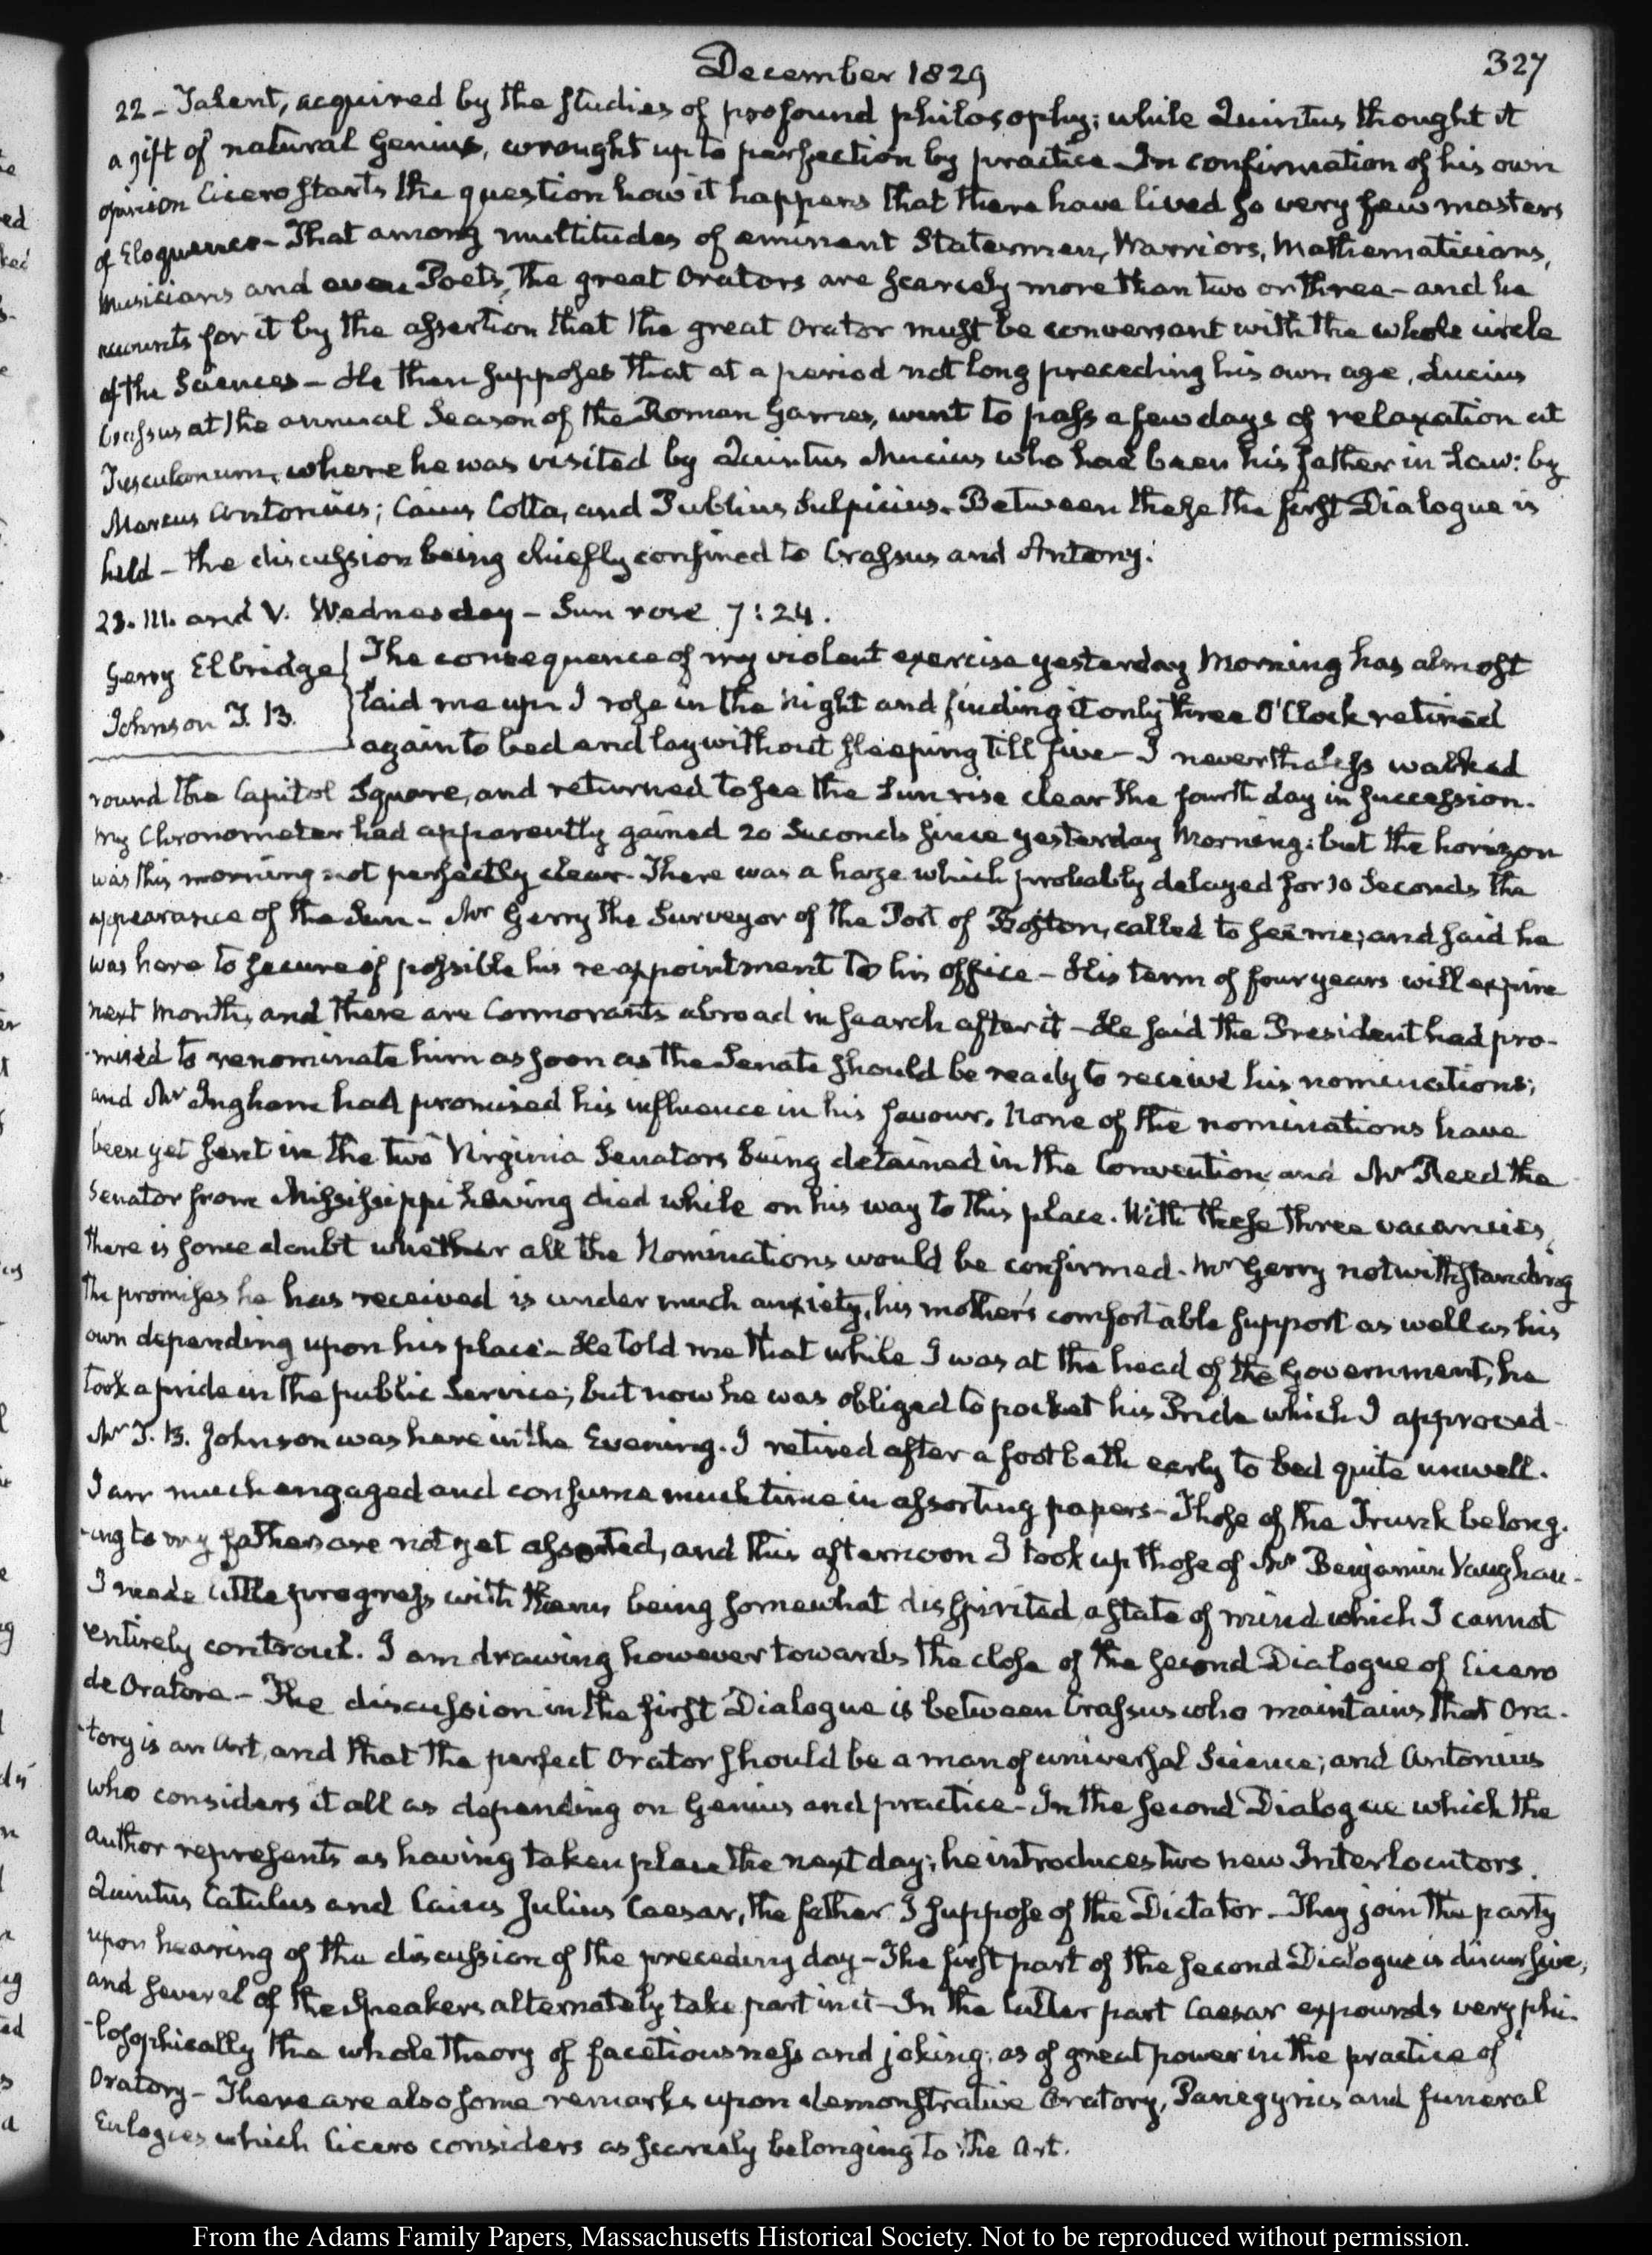 December 1829
327
22 - Talent, acquired by the studies of profound philosophy; while Quintus thought it
a gift of natural Genius, wrought up to perfection by practice - In confirmation of his own
opinion Cicero starts the question how it happens that there have lived so very few masters
of Eloquence - That among multitudes of eminent Statesmen, Warriors, Mathematicians,
Musicians and even Poets, the great Orators are scarcely more than two or three - and he
accounts for it by the assertion that the great Orator must be conversant with the whole circle
of the Sciences - He then supposes that at a period not long preceding his own age, Lucius
Crassus at the annual Season of the Roman Games, went to pass a few days of relaxation at
Tusculanum, where he was visited by Quintus Mucius who had been his father in Law: by
Marcus Antonius; Caius Cotta, and Publius Sulpicius. Between these the first Dialogue is
held - the discussion being chiefly confined to Crassus and Antony.
23. III. and V. Wednesday - Sun rose 7:24.
Gerry Elbridge
Johnson T. B.
The consequence of my violent exercise yesterday Morning has almost
laid me up. I rose in the Night and finding it only three O'Clock retired
again to bed and lay without sleeping till five - I nevertheless walked
round the Capitol Square, and returned to see the Sun rise clear the fourth day in succession.
My Chronometer had apparently gained 20 Seconds since yesterday Morning: but the horizon
was this morning not perfectly clear. There was a haze which probably delayed for 10 Seconds the
appearance of the Sun - Mr Gerry the Surveyor of the Port of Boston, called to see me; and said he
was here to secure if possible his re-appointment to his office - His term of four years will expire
next Month, and there are Cormorants abroad in search after it - He said the President had pro-
-mised to renominate him as soon as the Senate should be ready to receive his nominations;
and Mr Ingham had promised his influence in his favour. None of the nominations have
been yet sent in the two Virginia Senators being detained in the Convention and Mr Reed the
Senator from Mississippi having died while on his way to this place. With these three vacancies,
there is some doubt whether all the Nominations would be confirmed. Mr Gerry notwithstanding
the promises he has received is under much anxiety, his mother's comfortable support as well as his
own depending upon his place - He told me that while I was at the head of the Government, he
took a pride in the public Service; but now he was obliged to pocket his Pride which I approved -
Mr T. B. Johnson was here in the Evening. I retired after a foot bath early to bed quite unwell.
I am much engaged and consume much time in assorting papers - Those of the Trunk belong-
-ing to my father are not yet assorted, and this afternoon I took up those of Mr Benjamin Vaughan -
I made little progress with them being somewhat dispirited a state of mind which I cannot
entirely controul. I am drawing however towards the close of the second Dialogue of Cicero
de Oratore - The discussion in the first Dialogue is between Crassus who maintains that Ora-
-tory is an Art, and that the perfect Orator should be a man of universal Science; and Antonius
who considers it all as depending on Genius and practice - In the second Dialogue which the
author represents as having taken place the next day; he introduces two new Interlocutors.
Quintus Catulus and Caius Julius Caesar, the father I suppose of the Dictator - They join the party
upon hearing of the discussion of the preceding day - The first part of the second Dialogue is discursive,
and several of the Speakers alternately take part in it - In the latter part Caesar expounds very phi-
-losophically the whole theory of facetiousness and joking; as of great power in the practice of
Oratory - There are also some remarks upon demonstrative Oratory, Panegyrics and funeral
Eulogies which Cicero considers as scarcely belonging to the Art.
From the Adams Family Papers, Massachusetts Historical Society. Not to be reproduced without permission.